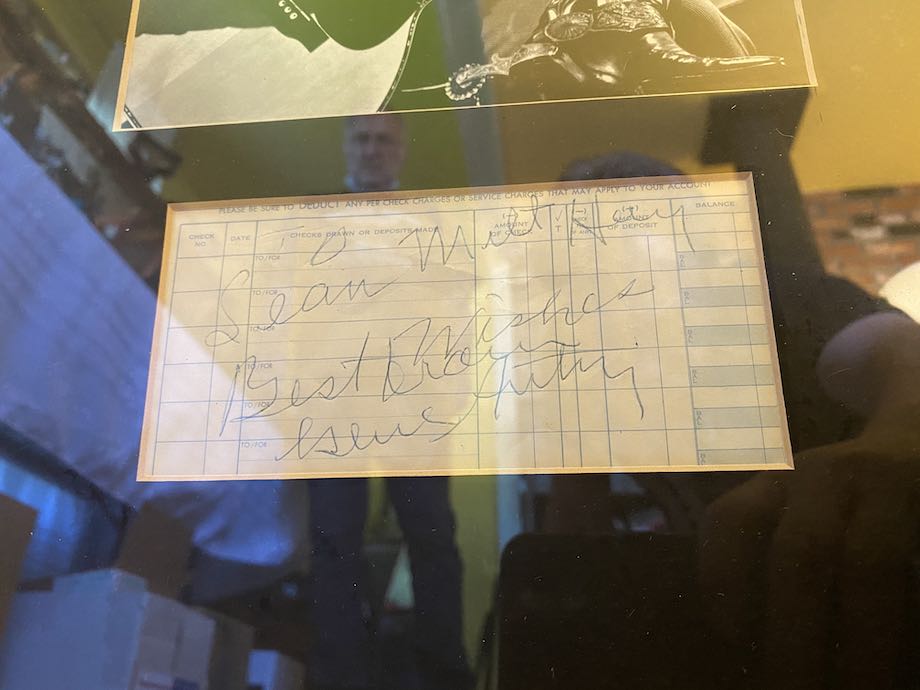 PLEASE BE SURE TO DEDUCT ANY PER CHECK CHARGES OR SERVICE CHARGES THAT MAY APPLY TO YOUR ACCOUNT
CHECK NO DATE CHECKS DRAWN OR DEPOSITS MADE (—) AMOUNT OF CHECK √ T (—) CHECK (+) AMOUNT OF DEPOSIT BALANCE
To Matt Hoy
Sean
Best Wishes
From
Gene Autry
TO/FOR
TO/FOR
TO/FOR
TO/FOR
TO/FOR
TO/FOR